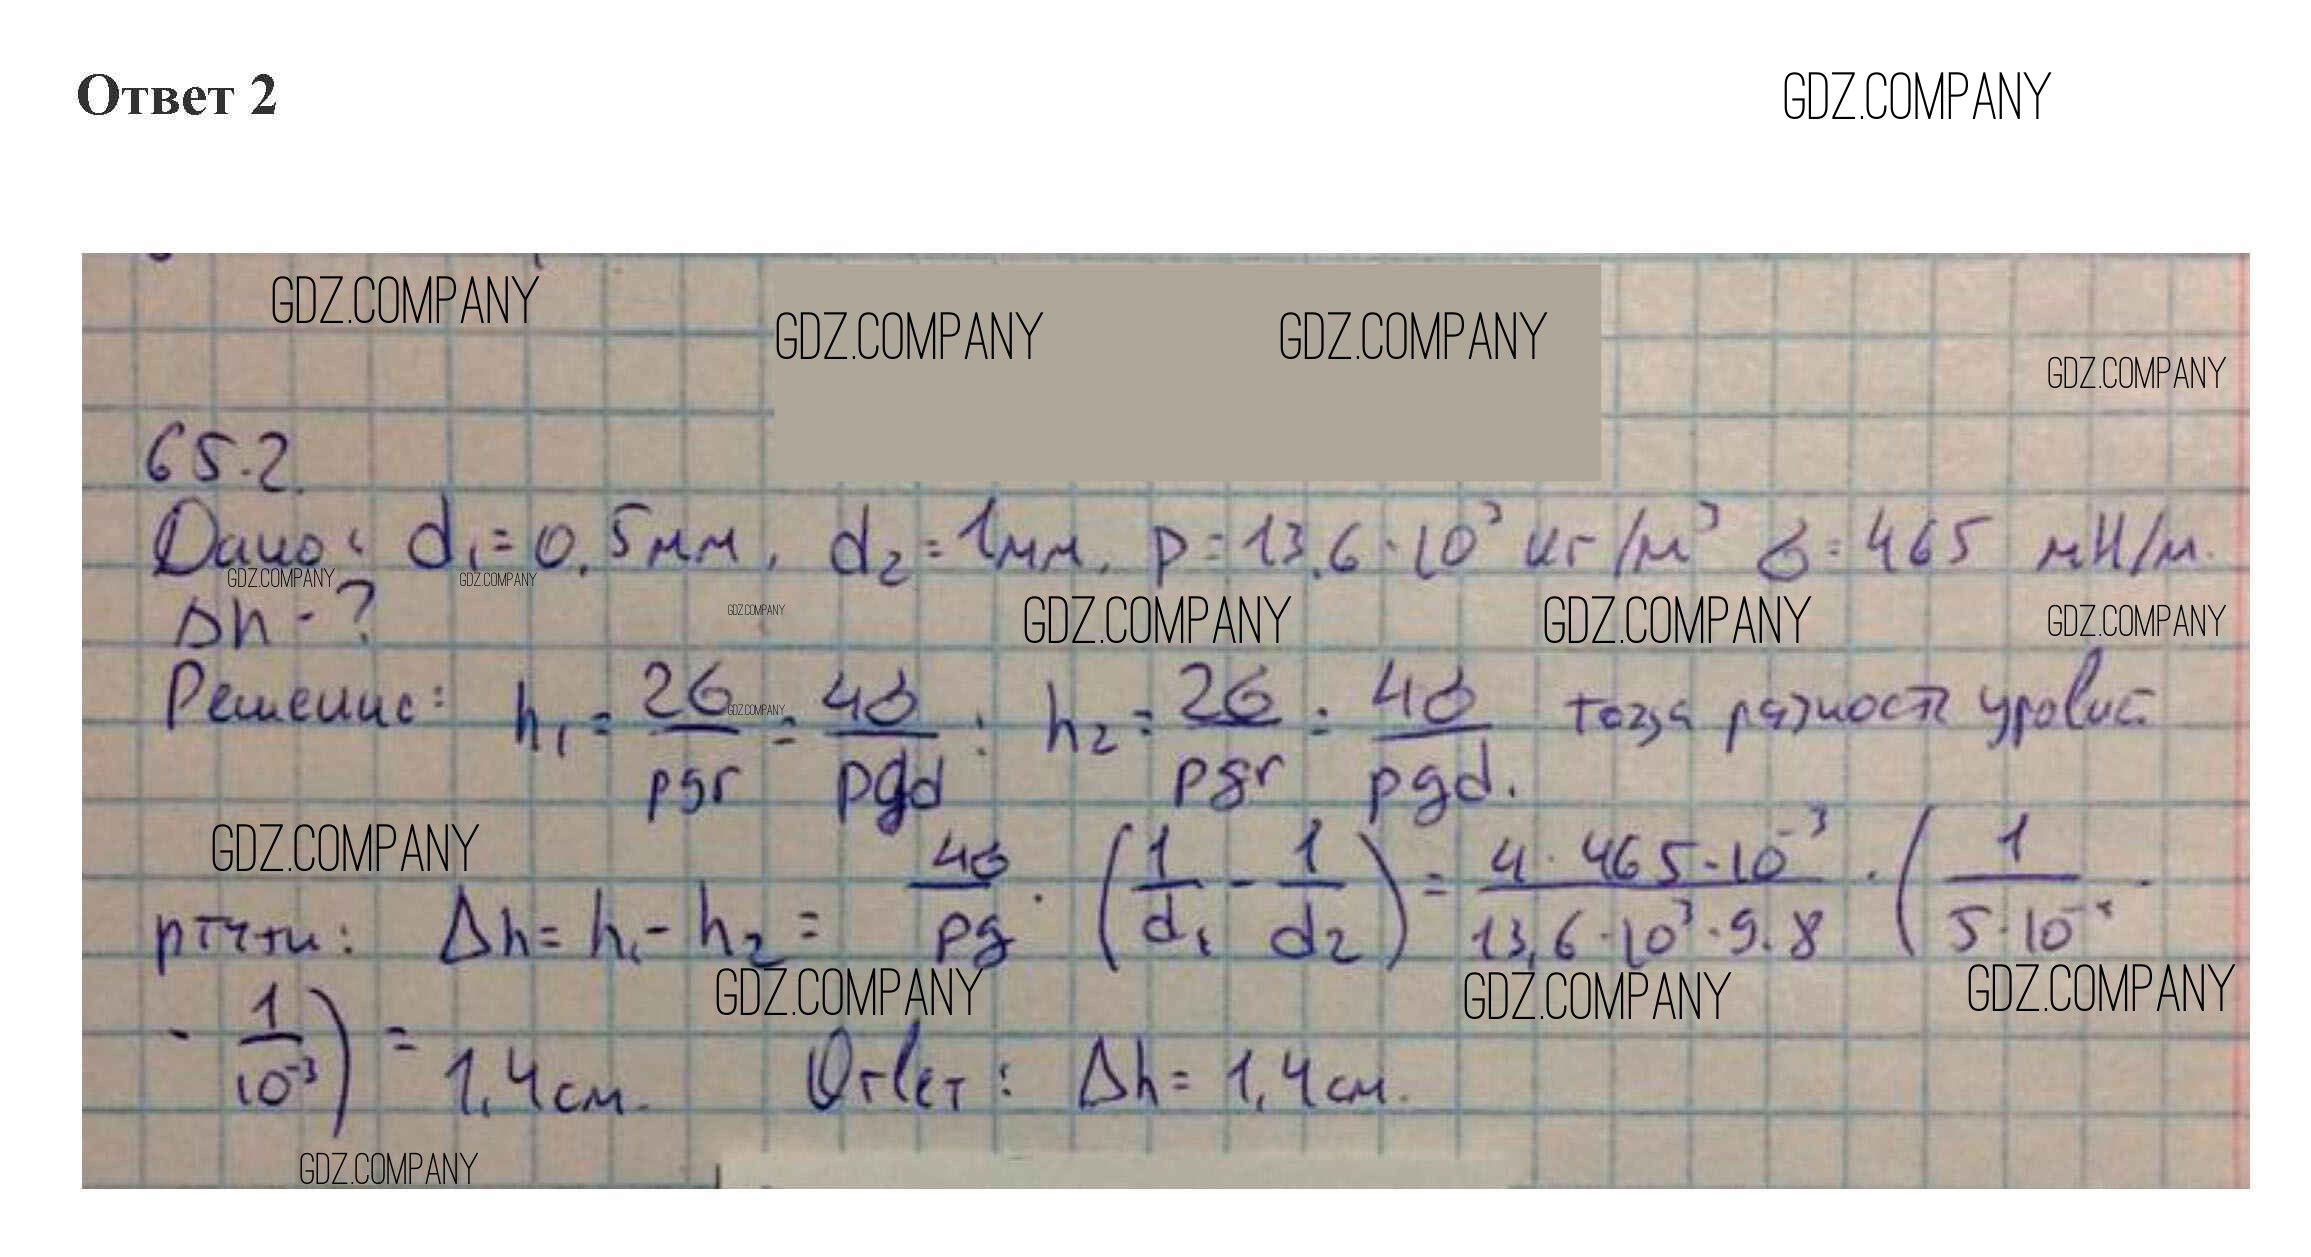 Ответ 2
GDZ.COMPANY
GDZ.COMPANY
GDZ.COMPANY GDZ.COMPANY
GDZ.COMPANY
65.2.
Дано: d₁ = 0.5 мм, d₂ = 1 мм, ρ = 13.6 · 10³ кг/м³ σ = 465 мН/м.
GDZ.COMPANY GDZ.COMPANY
GDZ.COMPANY GDZ.COMPANY GDZ.COMPANY GDZ.COMPANY
Δh - ?
Решение: h₁ = 2σ/ρgr = 4σ/ρgd ; h₂ = 2σ/ρgr = 4σ/ρgd. тогда разность уровней
GDZ.COMPANY
GDZ.COMPANY
ртути: Δh = h₁ - h₂ = 4σ/ρg · (1/d₁ - 1/d₂) = 4 · 465 · 10⁻³/13,6 · 10³ · 9.8 · (1/5 · 10⁻⁴ -
GDZ.COMPANY GDZ.COMPANY GDZ.COMPANY
- 1/10⁻³) = 1,4 см. Ответ: Δh = 1,4 см.
GDZ.COMPANY